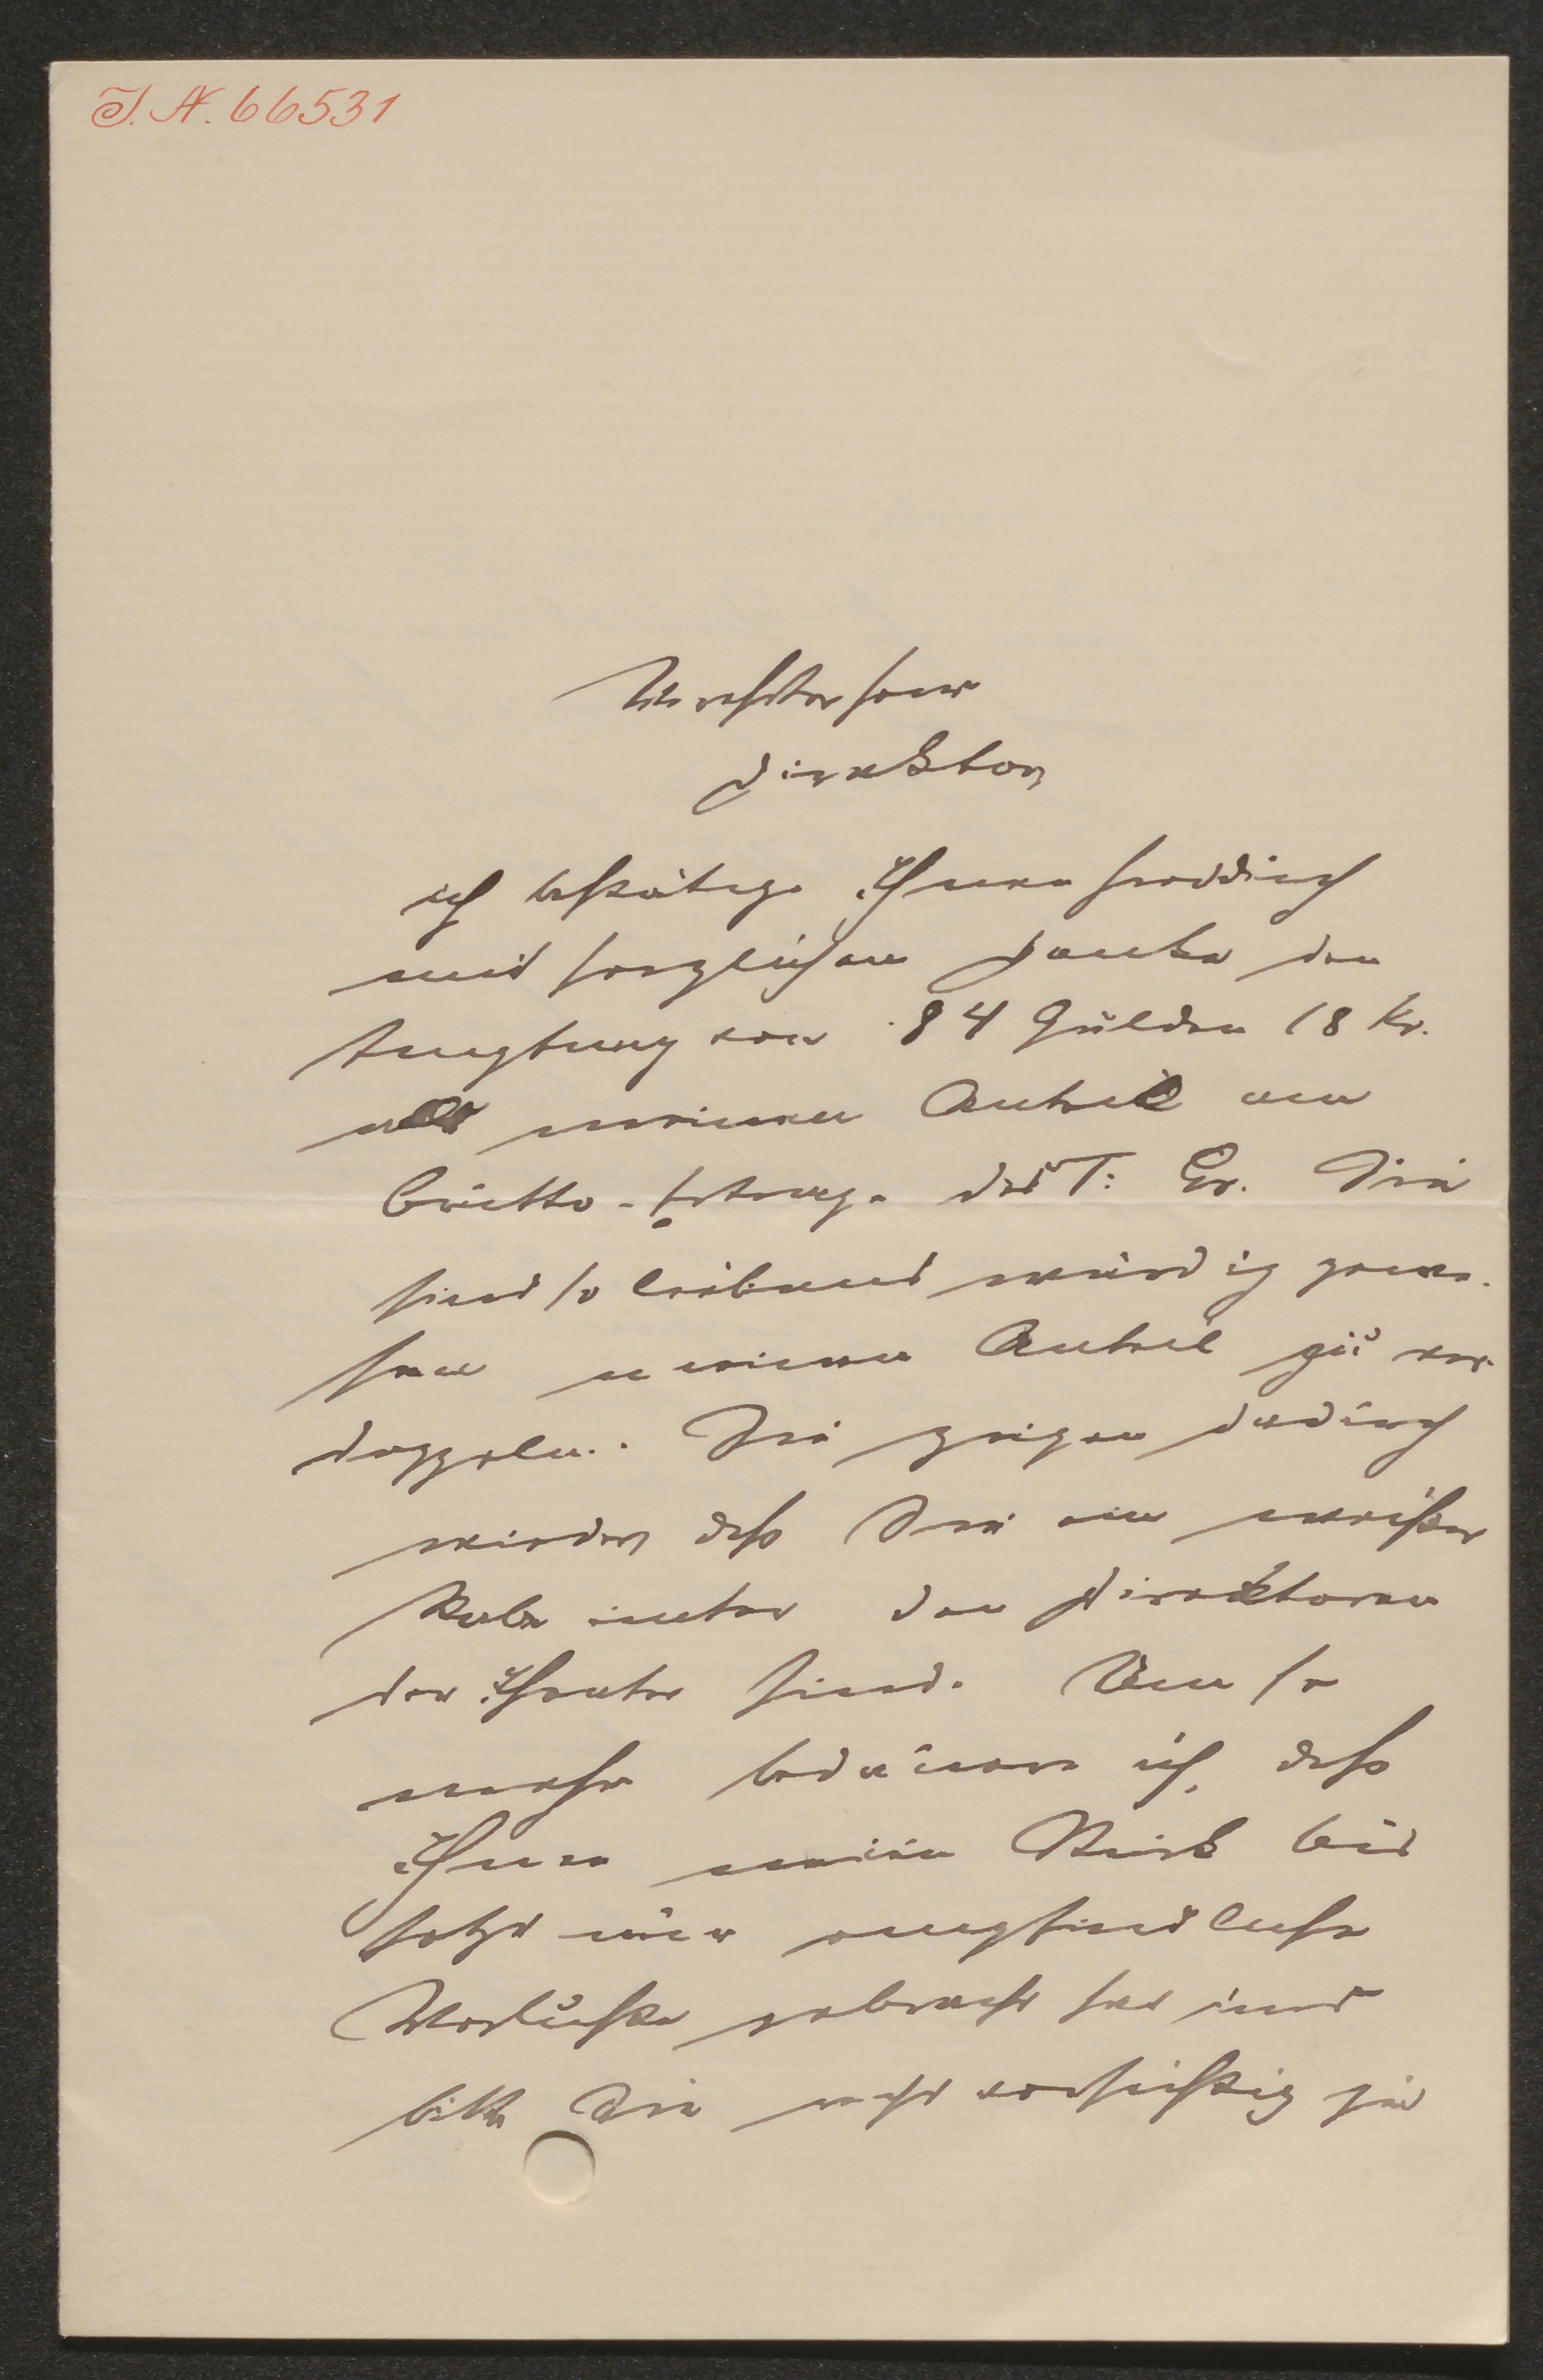 I. N. 66531
Verehrter Herr
Direktor,
ich bestätige Ihnen hierdurch
mit herzlichem Danke den
Empfang von 84 Gulden 18 Kr.
als meinen Anteil am
Brutto-Ertrage des T. Er. Sie
sind so liebenswürdig gewe-
sen meinen Anteil zu ver-
doppeln. Sie zeigen dadurch
wieder, daß Sie ein weißer
Rabe unter den Direktoren
der Theater sind. Um so
mehr bedauere ich, daß
Ihnen mein Stück bis
jetzt nur empfindliche
Verluste gebracht hat und
bitte Sie recht vorsichtig zu